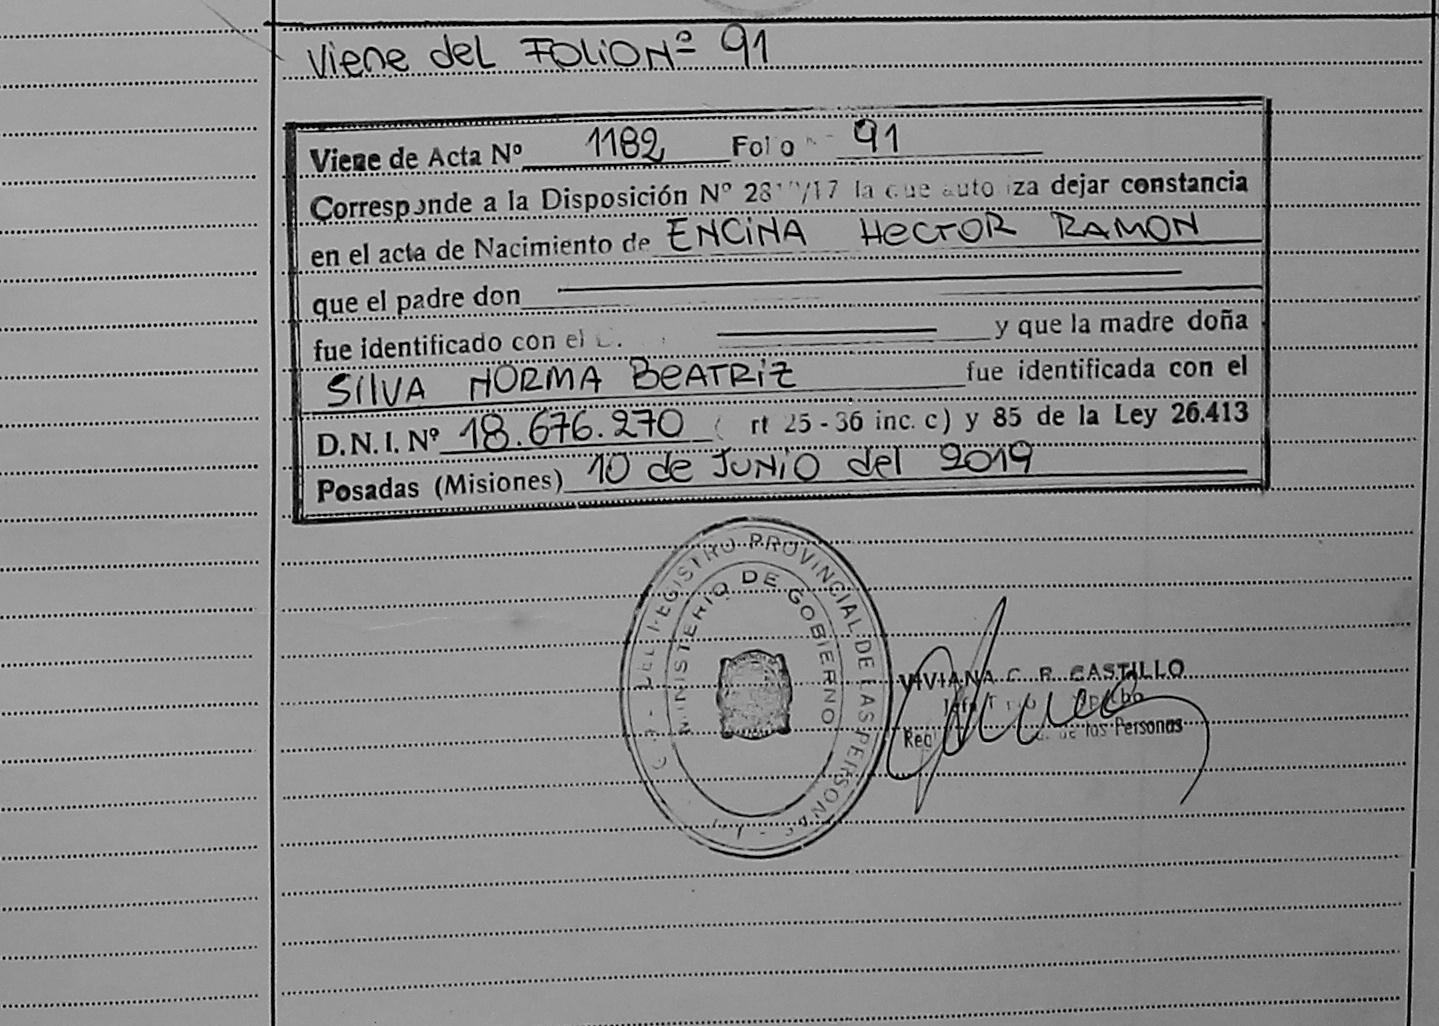 Viene del FOLIO Nº 91
Viene de Acta Nº 1182 Folio 91
Corresponde a la Disposición Nº la que autoriza dejar constancia
en el acta de Nacimiento de ENCINA HECTOR RAMON
que el padre don
fue identificado con el
y que la madre doña
SILVA NORMA BEATRIZ fue identificada con el
D.N.I. Nº 18.676.270 (Art 25 - 36 inc. c) y 85 de la Ley 26.413
Posadas (Misiones) 10 de JUNIO del 2019
REGISTRO PROVINCIAL DE LAS PERSONAS
MINISTERIO DE GOBIERNO
VIVIANA C. R. CASTILLO
de las Personas